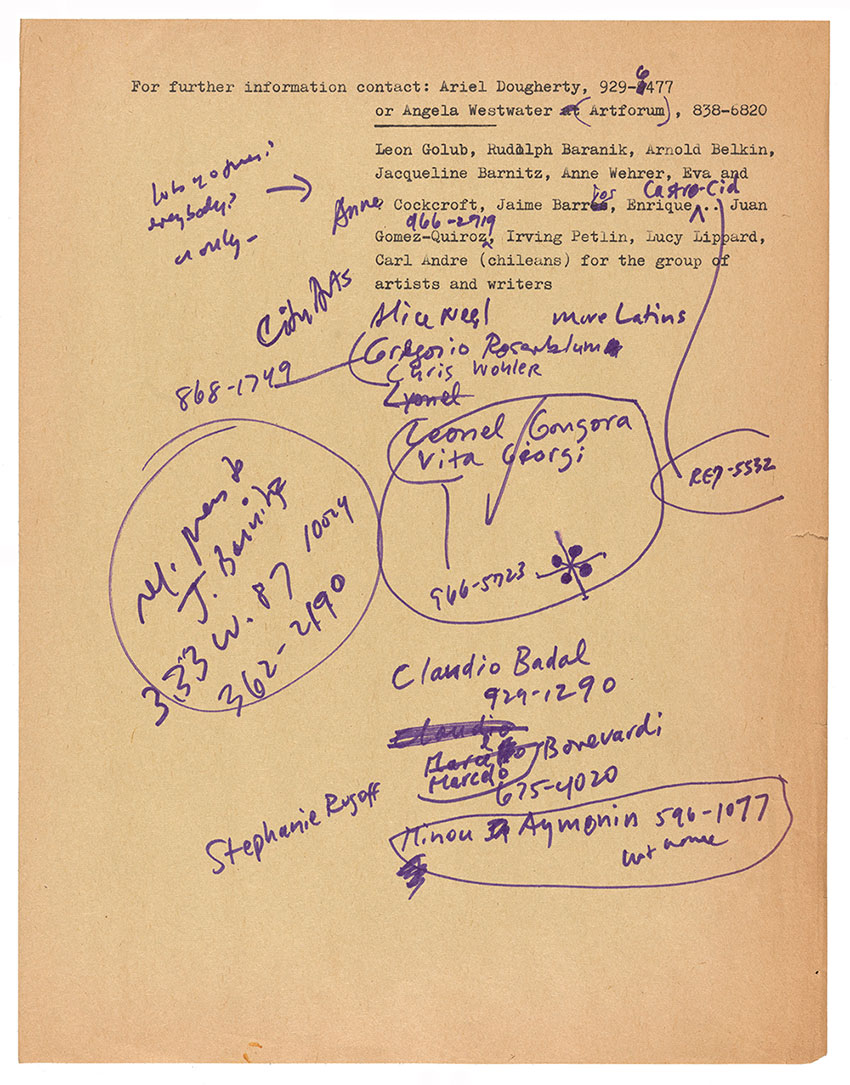 For further information contact: Ariel Dougherty, 929-6477
or Angela Westwater at (Artforum), 838-6820
Leon Golub, Rudolph Baranik, Arnold Belkin,
Jacqueline Barnitz, Anne Wehrer, Eva and
Castro-Cid
Anne Cockcroft, Jaime Barrios, Enrique .. Juan
966-2919
Gomez-Quiroz, Irving Petlin, Lucy Lippard,
Carl Andre (chileans) for the group of
artists and writers
everybody?
or only -
City Arts
Alice Neel more Latins
Gregorio Rosenblum
868-1749
Chris Wohler
Lyonel
Leonel Gongora
Vita Giorgi
RE7-5532
966-5723
rel. press to
J. Barnitz
333 W. 87 10024
362-2190
Claudio Badal
929-1290
Claudio
Marcelo Bonevardi
Marcelo
675-4020
Stephanie Rugoff
Minou Aymonin 596-1077